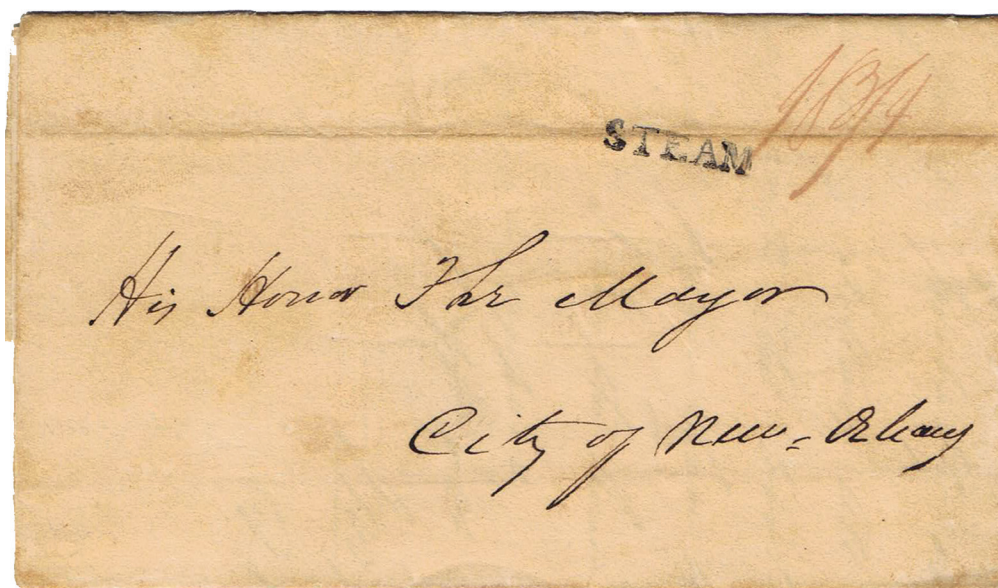 18¾
STEAM
His Honor The Mayor
City of New-Orleans